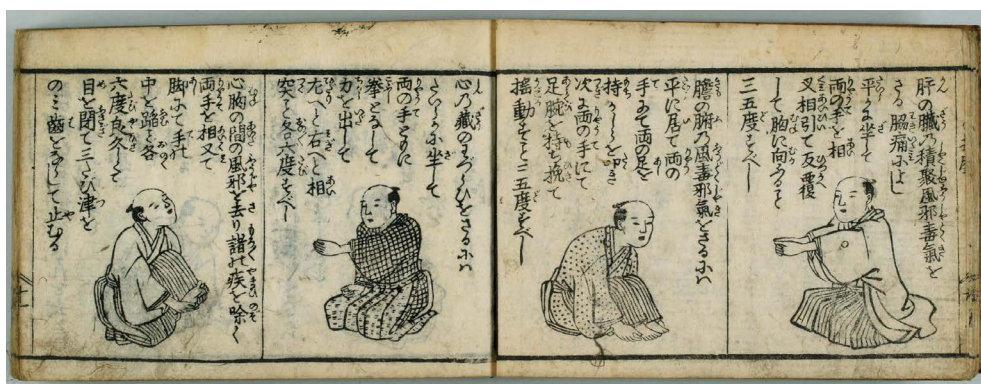 肝の臓乃積聚風邪毒氣を
さる脇痛によし
平かに坐して
両の手を相
叉相引て反覆
して胸に向ること
三五度すべし
膽の腑乃風毒邪氣をさるにハ
平に居て両の
手にて両の足を
持かしらを叩き
次に両の手にて
足腕を持ち挽て
揺動をすこと三五度すべし
心乃蔵のわづらひをさるにハ
たいらかに坐して
両の手ともに
拳として
力を出して
左へと右へと相
突こと各六度すべし
心胸の間の風邪を去り諸の疾を除く
両手を相叉て
脚にて手の
中を踏こと各
六度良久して
目を閉て三たび津を
のミ歯をならして止むる